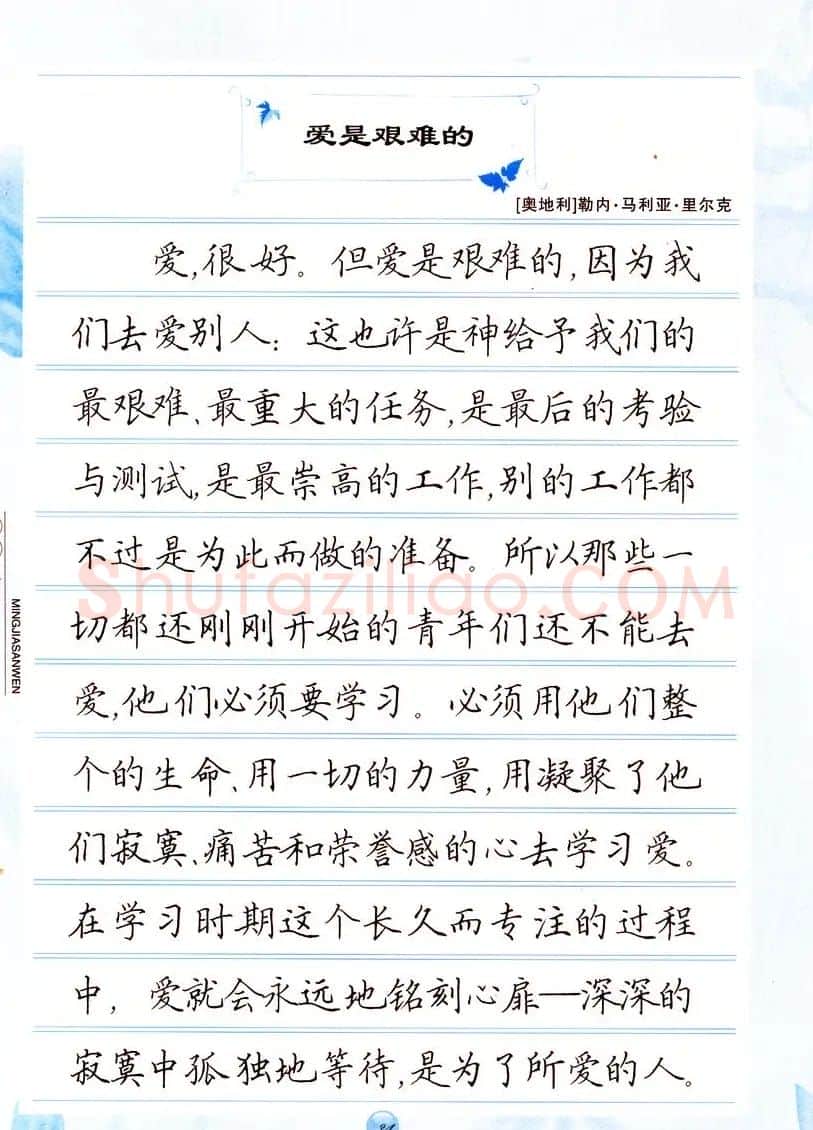 爱是艰难的
[奥地利]勒内·马利亚·里尔克
爱,很好。但爱是艰难的,因为我
们去爱别人：这也许是神给予我们的
最艰难、最重大的任务,是最后的考验
与测试,是最崇高的工作,别的工作都
不过是为此而做的准备。所以那些一
切都还刚刚开始的青年们还不能去
爱,他们必须要学习。必须用他们整
个的生命、用一切的力量,用凝聚了他
们寂寞、痛苦和荣誉感的心去学习爱。
在学习时期这个长久而专注的过程
中，爱就会永远地铭刻心扉—深深的
寂寞中孤独地等待,是为了所爱的人。
MINGJIASANWEN
Shufaziliao.COM